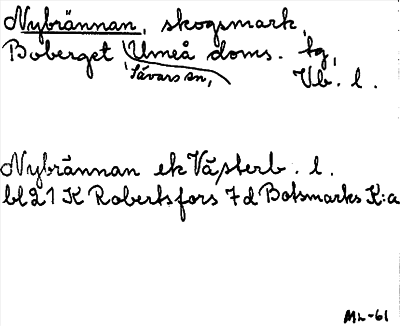 Nybrännan, skogsmark,
Boberget Umeå doms. tg,
Sävars sn, Vb. l.
Nybrännan ek Västerb. l.
bl 21 K Robertsfors 7 d Botsmarks K:a
ML-61